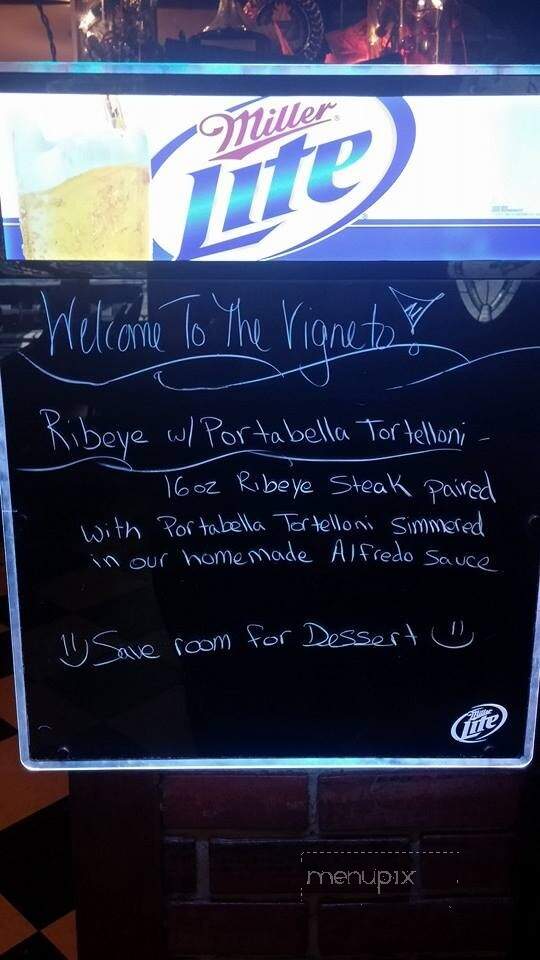 Miller
Lite
Welcome To The Vigneto!
Ribeye w/ Portabella Tortelloni -
16oz Ribeye Steak paired
with Portabella Tortelloni Simmered
in our homemade Alfredo Sauce
Save room for Dessert
Miller
Lite
menupix